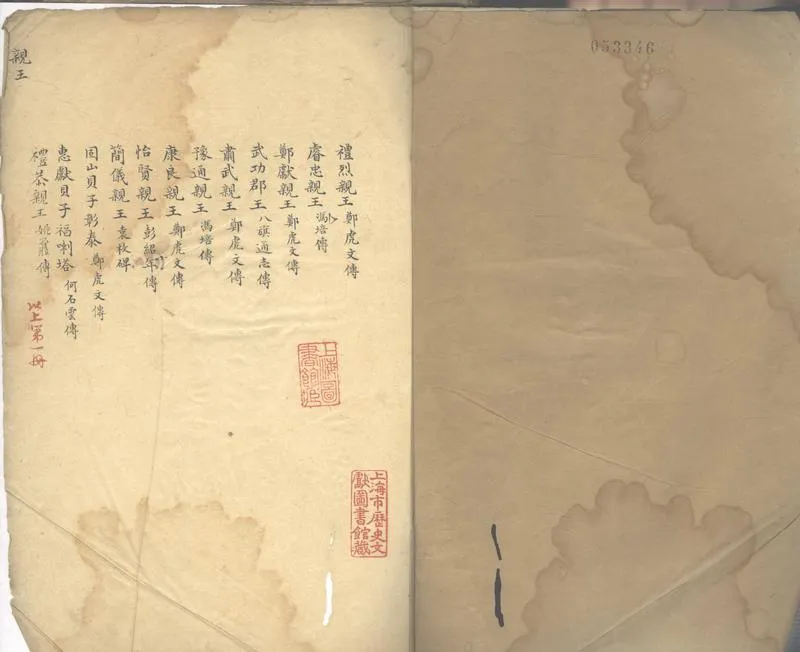 親王
禮烈親王 鄭虎文傳
睿忠親王 馮培傳
鄭獻親王 鄭虎文傳
武功郡王 八旗通志傳
肅武親王 鄭虎文傳
豫通親王 馮培傳
康良親王 鄭虎文傳
怡賢親王 彭紹升傳
簡儀親王 袁枚碑
固山貝子彰泰 鄭虎文傳
惠獻貝子福喇塔 何石雲傳
禮恭親王 姚鼐傳
以上第一冊
上海圖
書館藏
上海市歷史文
獻圖書館藏
053346